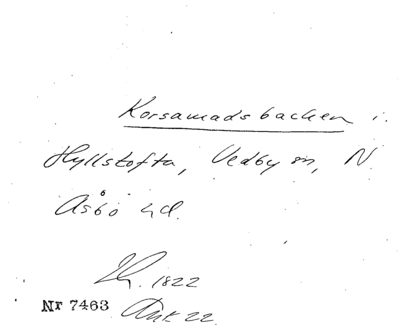 Korsamadsbacken i.
Hyllstofta, Vedby sn, N.
Åsbo hd.
1822
Nr 7463 Ank 22.